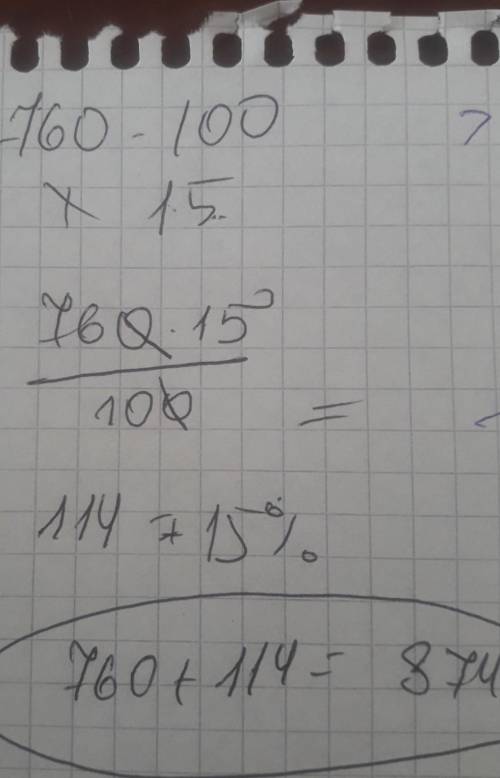 760 - 100
x 15
760 · 15
100 =
114 = 15%
760 + 114 = 874